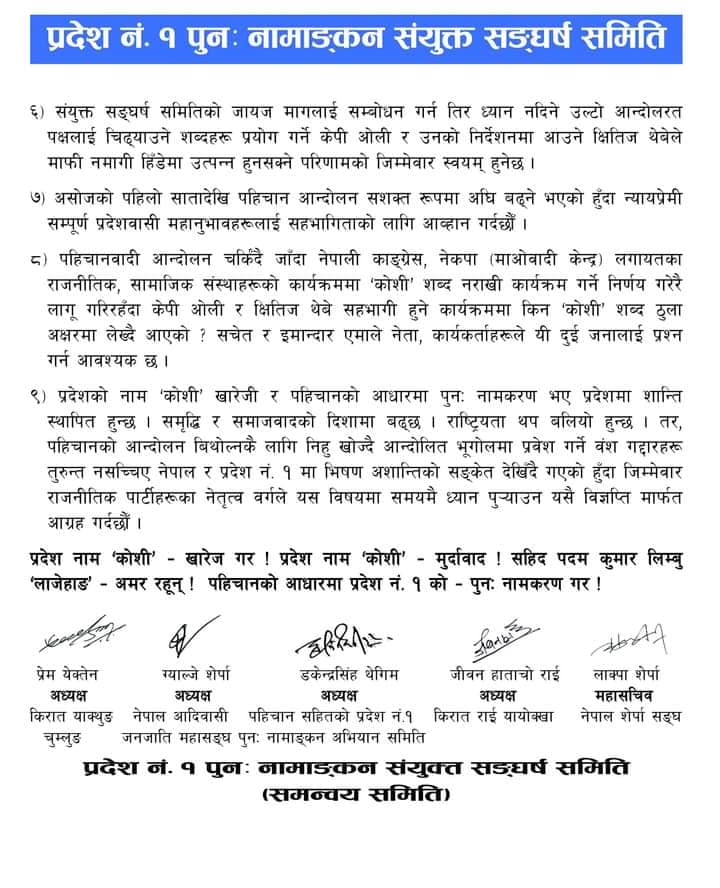 प्रदेश नं. १ पुनः नामाङ्कन संयुक्त सङ्घर्ष समिति
६) संयुक्त सङ्घर्ष समितिको जायज मागलाई सम्बोधन गर्न तिर ध्यान नदिने उल्टो आन्दोलरत
पक्षलाई चिढ्याउने शब्दहरू प्रयोग गर्ने केपी ओली र उनको निर्देशनमा आउने क्षितिज थेबेले
माफी नमागी हिँडेमा उत्पन्न हुनसक्ने परिणामको जिम्मेवार स्वयम् हुनेछ ।
७) असोजको पहिलो सातादेखि पहिचान आन्दोलन सशक्त रूपमा अघि बढ्ने भएको हुँदा न्यायप्रेमी
सम्पूर्ण प्रदेशवासी महानुभावहरूलाई सहभागिताको लागि आव्हान गर्दछौं ।
८) पहिचानवादी आन्दोलन चर्किदै जाँदा नेपाली काङ्ग्रेस, नेकपा (माओवादी केन्द्र) लगायतका
राजनीतिक, सामाजिक संस्थाहरूको कार्यक्रममा ‘कोशी’ शब्द नराखी कार्यक्रम गर्ने निर्णय गरेरै
लागू गरिरहँदा केपी ओली र क्षितिज थेबे सहभागी हुने कार्यक्रममा किन ‘कोशी’ शब्द ठुला
अक्षरमा लेख्दै आएको ? सचेत र इमान्दार एमाले नेता, कार्यकर्ताहरूले यी दुई जनालाई प्रश्न
गर्न आवश्यक छ ।
९) प्रदेशको नाम ‘कोशी’ खारेजी र पहिचानको आधारमा पुनः नामकरण भए प्रदेशमा शान्ति
स्थापित हुन्छ । समृद्धि र समाजवादको दिशामा बढ्छ । राष्ट्रियता थप बलियो हुन्छ । तर,
पहिचानको आन्दोलन बिथोल्नकै लागि निहु खोज्दै आन्दोलित भूगोलमा प्रवेश गर्ने वंश गद्दारहरू
तुरुन्त नसच्चिए नेपाल र प्रदेश नं. १ मा भिषण अशान्तिको सङ्केत देखिँदै गएको हुँदा जिम्मेवार
राजनीतिक पार्टीहरूका नेतृत्व वर्गले यस विषयमा समयमै ध्यान पुऱ्याउन यसै विज्ञप्ति मार्फत
आग्रह गर्दछौं ।
प्रदेश नाम ‘कोशी’ - खारेज गर ! प्रदेश नाम ‘कोशी’ - मुर्दावाद ! सहिद पदम कुमार लिम्बु
‘लाजेहाङ’ - अमर रहून् ! पहिचानको आधारमा प्रदेश नं. १ को - पुनः नामकरण गर !
प्रेम येक्तेन ग्याल्जे शेर्पा डकेन्द्रसिंह थेगिम जीवन हाताचो राई लाक्पा शेर्पा
अध्यक्ष अध्यक्ष अध्यक्ष अध्यक्ष महासचिव
किरात याक्थुङ नेपाल आदिवासी पहिचान सहितको प्रदेश नं.१ किरात राई यायोक्खा नेपाल शेर्पा सङ्घ
चुम्लुङ जनजाति महासङ्घ पुनः नामाङ्कन अभियान समिति
प्रदेश नं. १ पुनः नामाङ्कन संयुक्त सङ्घर्ष समिति
(समन्वय समिति)